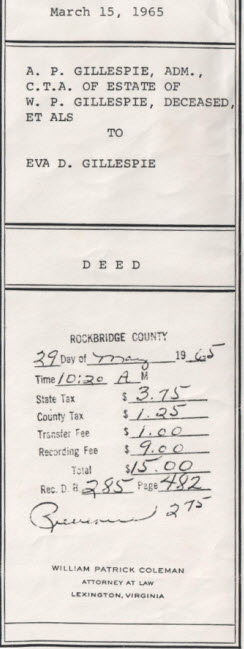 March 15, 1965
A. P. GILLESPIE, ADM.,
C.T.A. OF ESTATE OF
W. P. GILLESPIE, DECEASED,
ET ALS
TO
EVA D. GILLESPIE
D E E D
ROCKBRIDGE COUNTY
29 Day of May 1965
Time 10:20 A M
State Tax $ 3.75
County Tax $ 1.25
Transfer Fee $ 1.00
Recording Fee $ 9.00
Total $15.00
Rec. D. B. 285 Page 482
275
WILLIAM PATRICK COLEMAN
ATTORNEY AT LAW
LEXINGTON, VIRGINIA